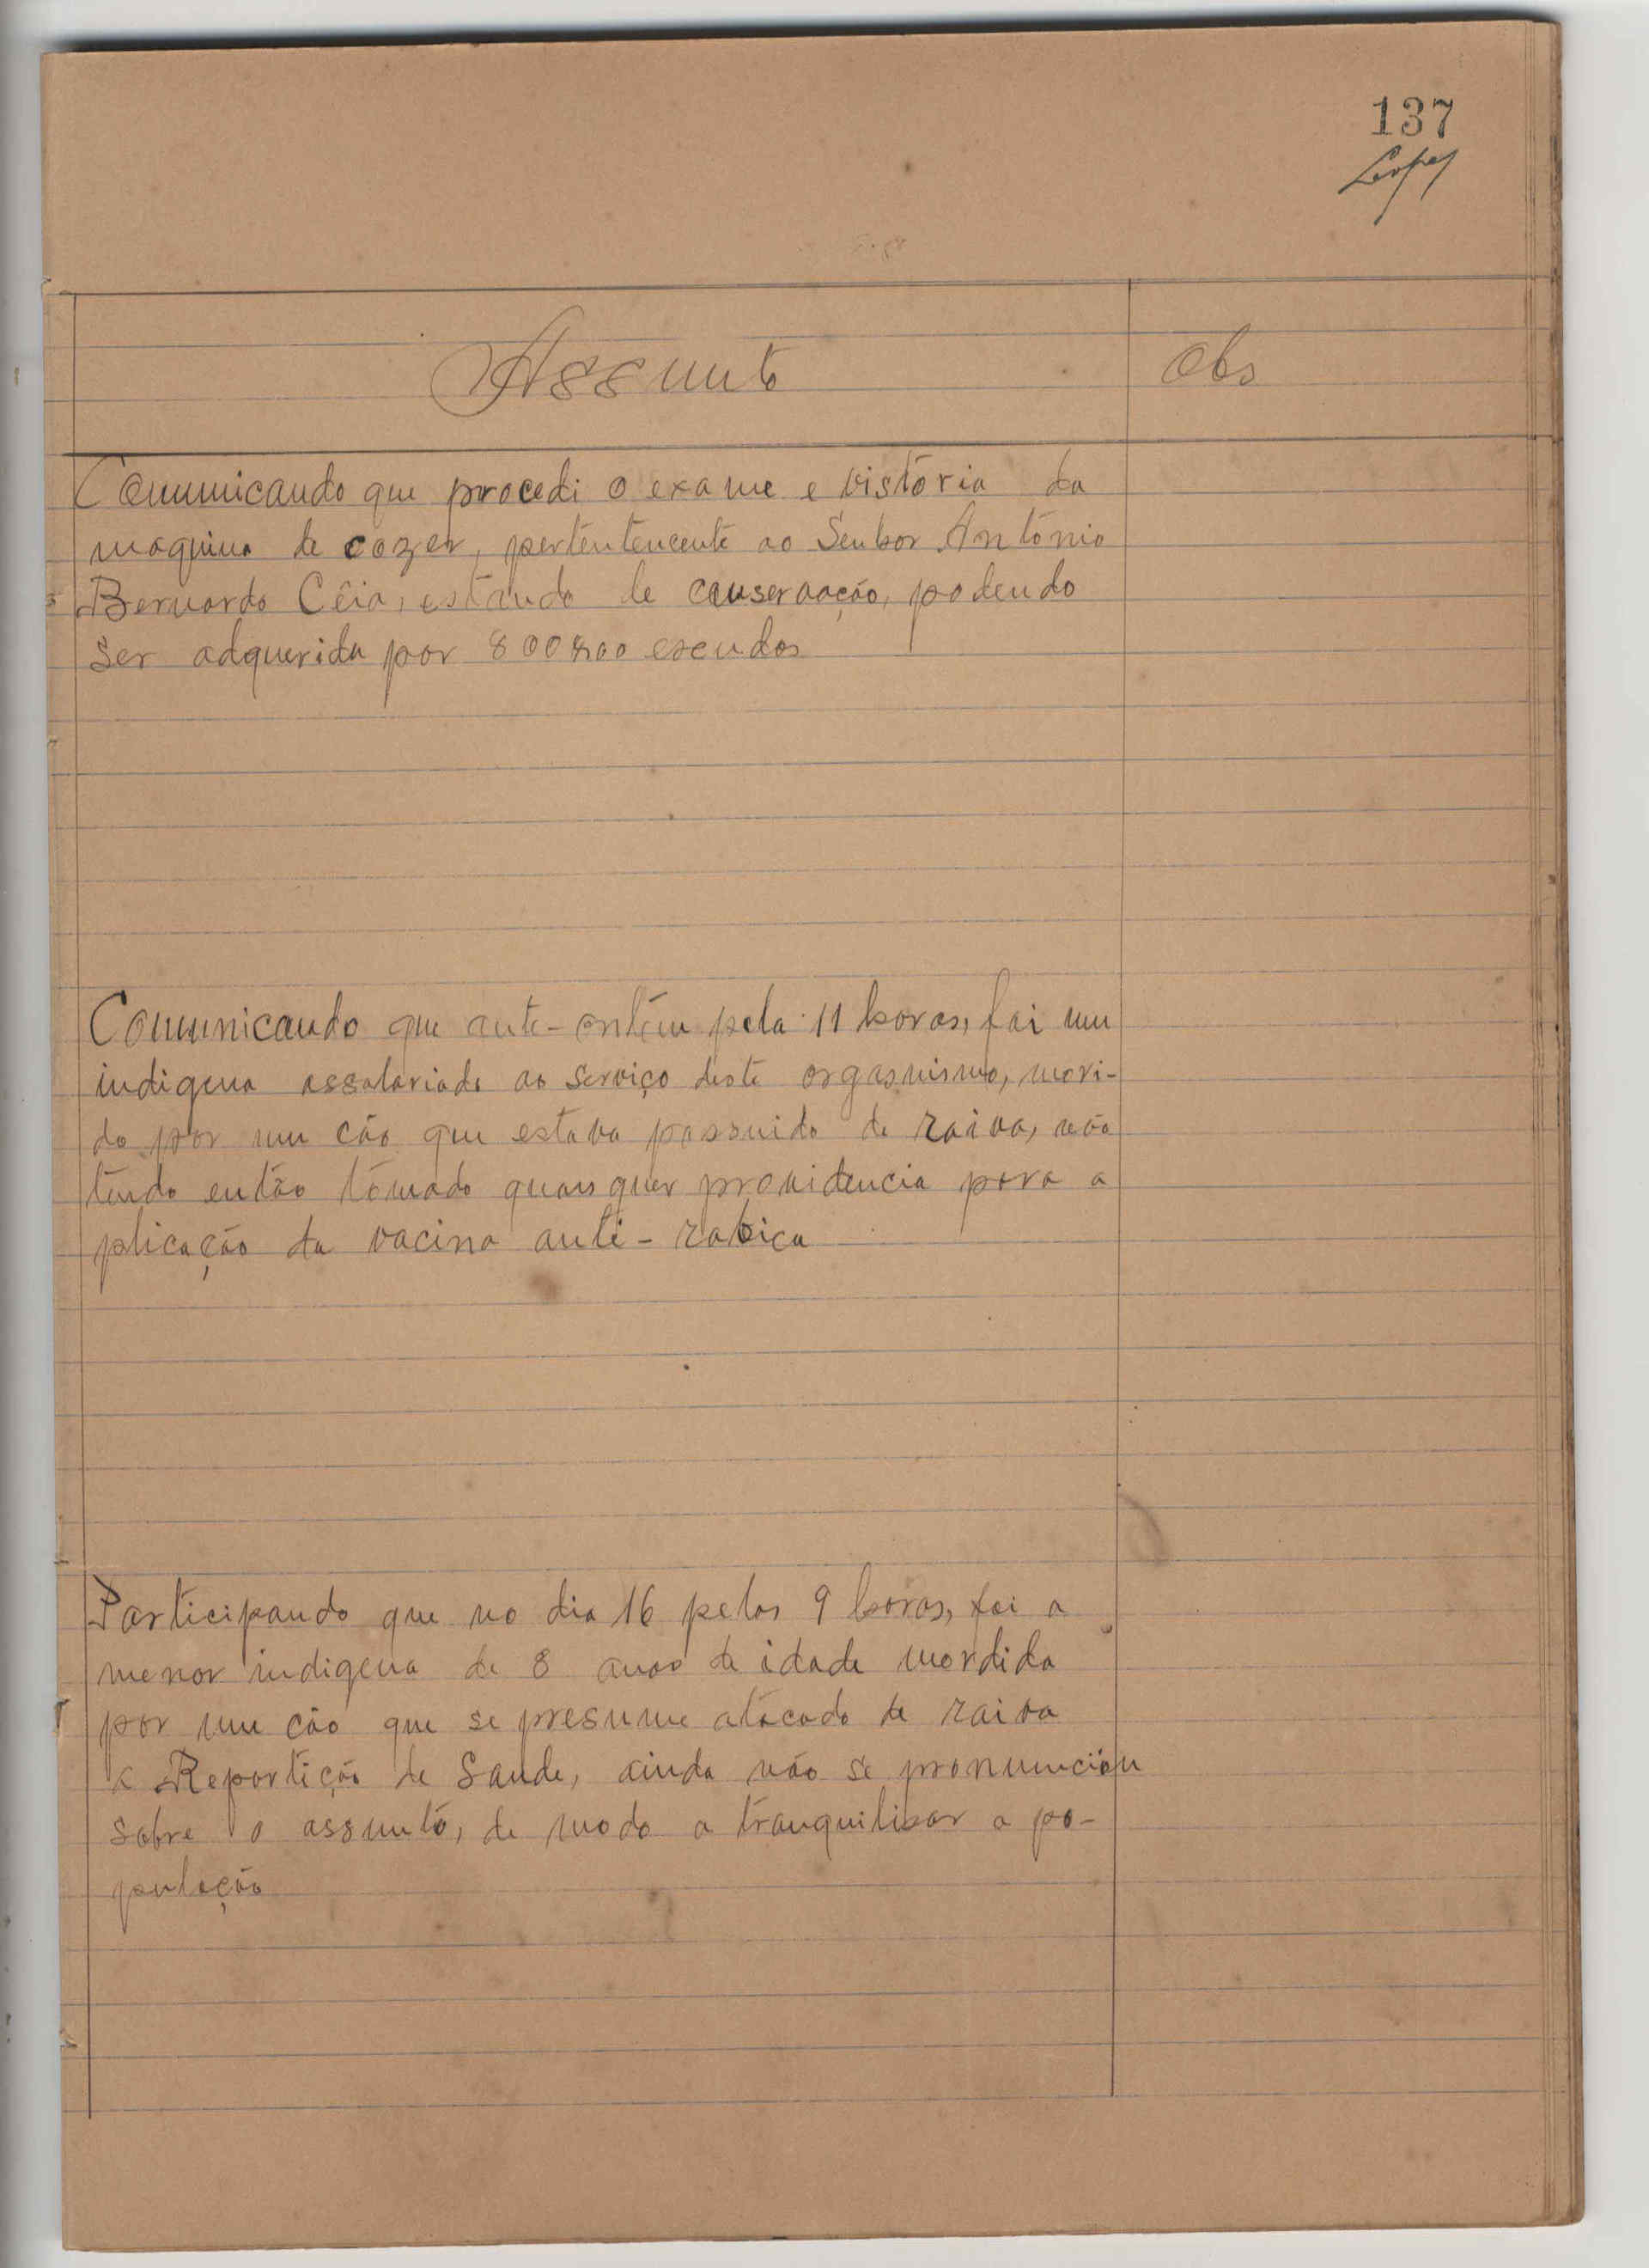 137
Lopes
Assunto
Obs
Comunicando que procedi o exame e vistória da
maquina de cozer, pertentencente ao Senhor António
Bernardo Cêia, estando de conservação, podendo
ser adquerida por 800$00 escudos
Comunicando que ante-ontém pela 11 horas, foi um
indigena assalariado ao serviço deste orgasnismo, mori-
do por um cão que estava possuido de raiva, não
tendo então tómado quaisquer providencia para a
plicação da vacina anti-rabica
Participando que no dia 16 pelas 9 horas, foi a
menor indigena de 8 anos de idade mordida
por um cão que se presume atácado de raiva
a Repartição de Saude, ainda não se pronunciou
sobre o assunto, de modo a tranquilisar a po-
pulação